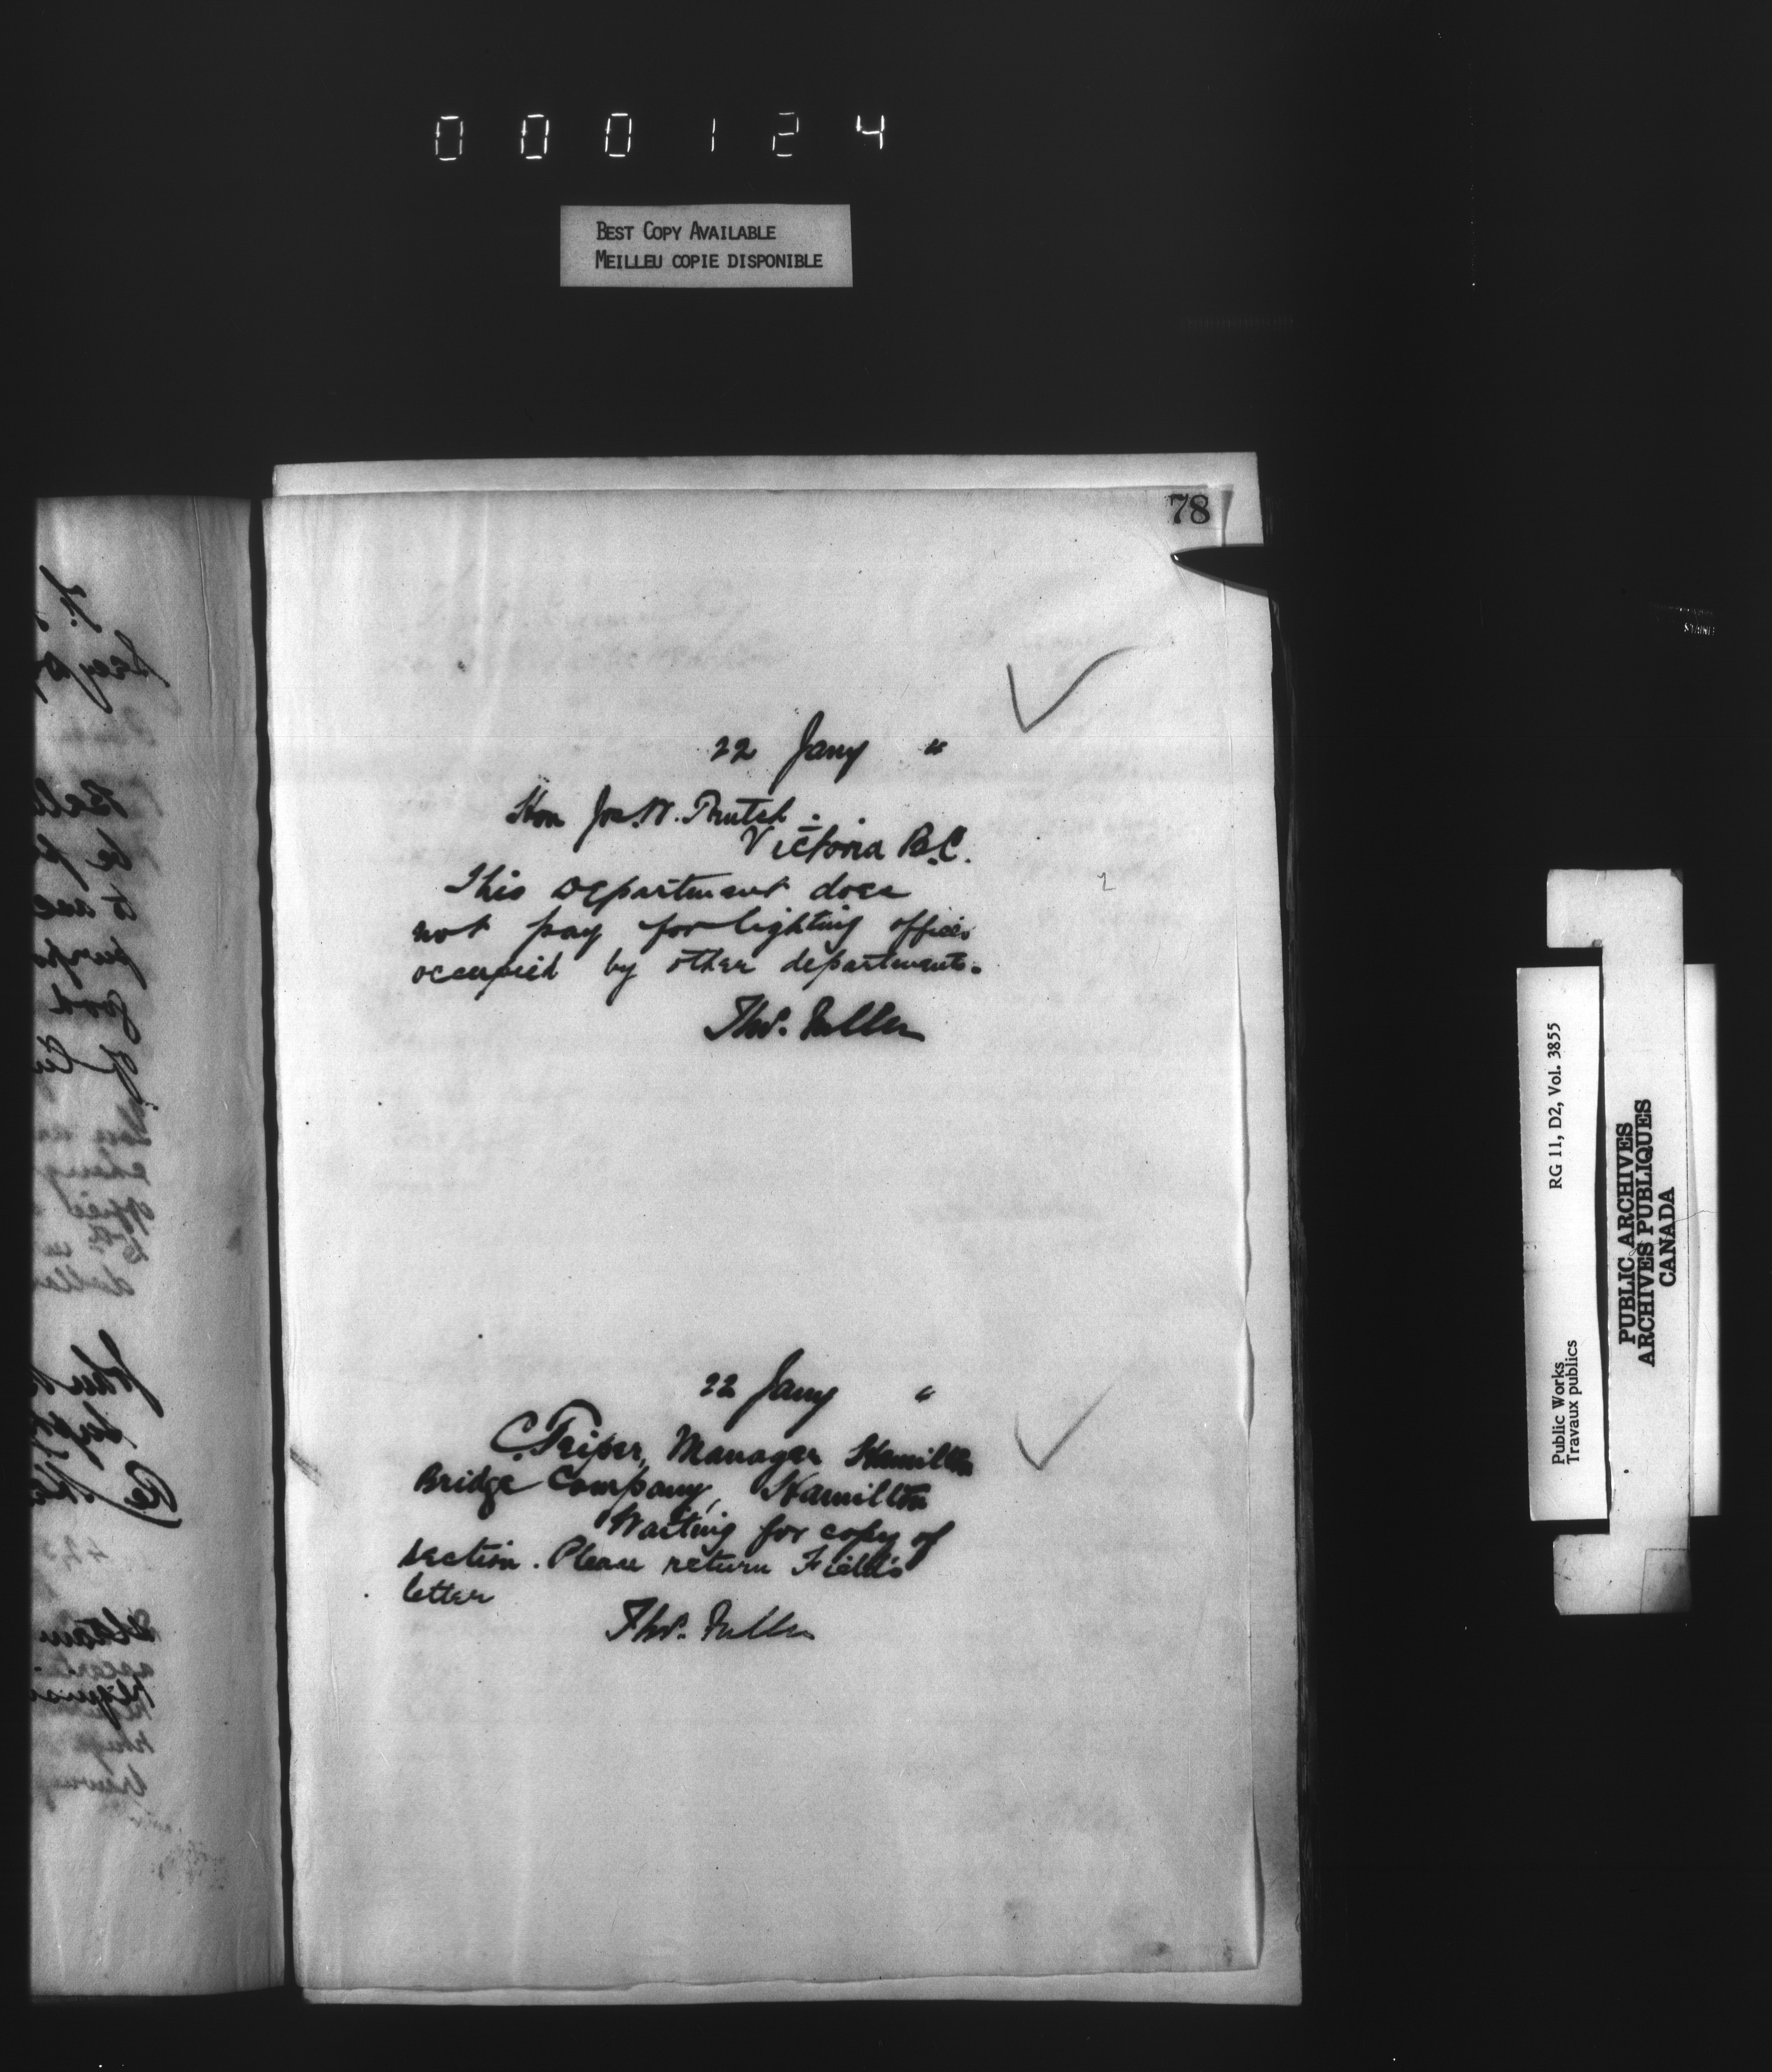 000124
BEST COPY AVAILABLE
MEILLEU COPIE DISPONIBLE
78
22 Jany "
Hon Jos. W. Trutch.
Victoria B.C.
This Department does
not pay for lighting offices
occupied by other departments.
Thos. Fuller
22 Jany "
Manager Hamilton
Bridge Company, Hamilton
Waiting for copy of
section. Please return Field's
letter
Thos. Fuller
Public Works
Travaux publics
RG 11, D2, Vol. 3855
PUBLIC ARCHIVES
ARCHIVES PUBLIQUES
CANADA